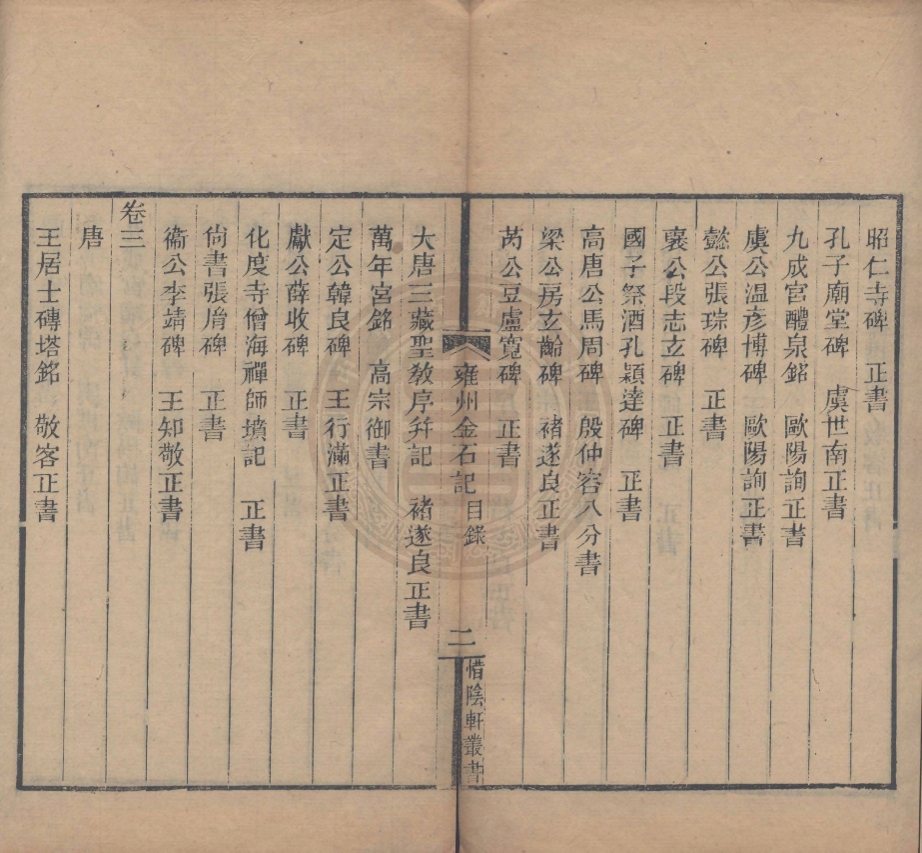 昭仁寺碑　正書
孔子廟堂碑　虞世南正書
九成宮醴泉銘　歐陽詢正書
虞公溫彥博碑　歐陽詢正書
懿公張琮碑　正書
襄公段志玄碑　正書
國子祭酒孔穎達碑　正書
高唐公馬周碑　殷仲容八分書
梁公房玄齡碑　褚遂良正書
芮公豆盧寬碑　正書
雍州金石記　目錄　二　惜陰軒叢書
大唐三藏聖教序并記　褚遂良正書
萬年宮銘　高宗御書
定公韓良碑　王行滿正書
獻公薛收碑　正書
化度寺僧海禪師墳記　正書
尙書張𦙍碑　正書
衞公李靖碑　王知敬正書
卷三
唐
王居士磚塔銘　敬客正書